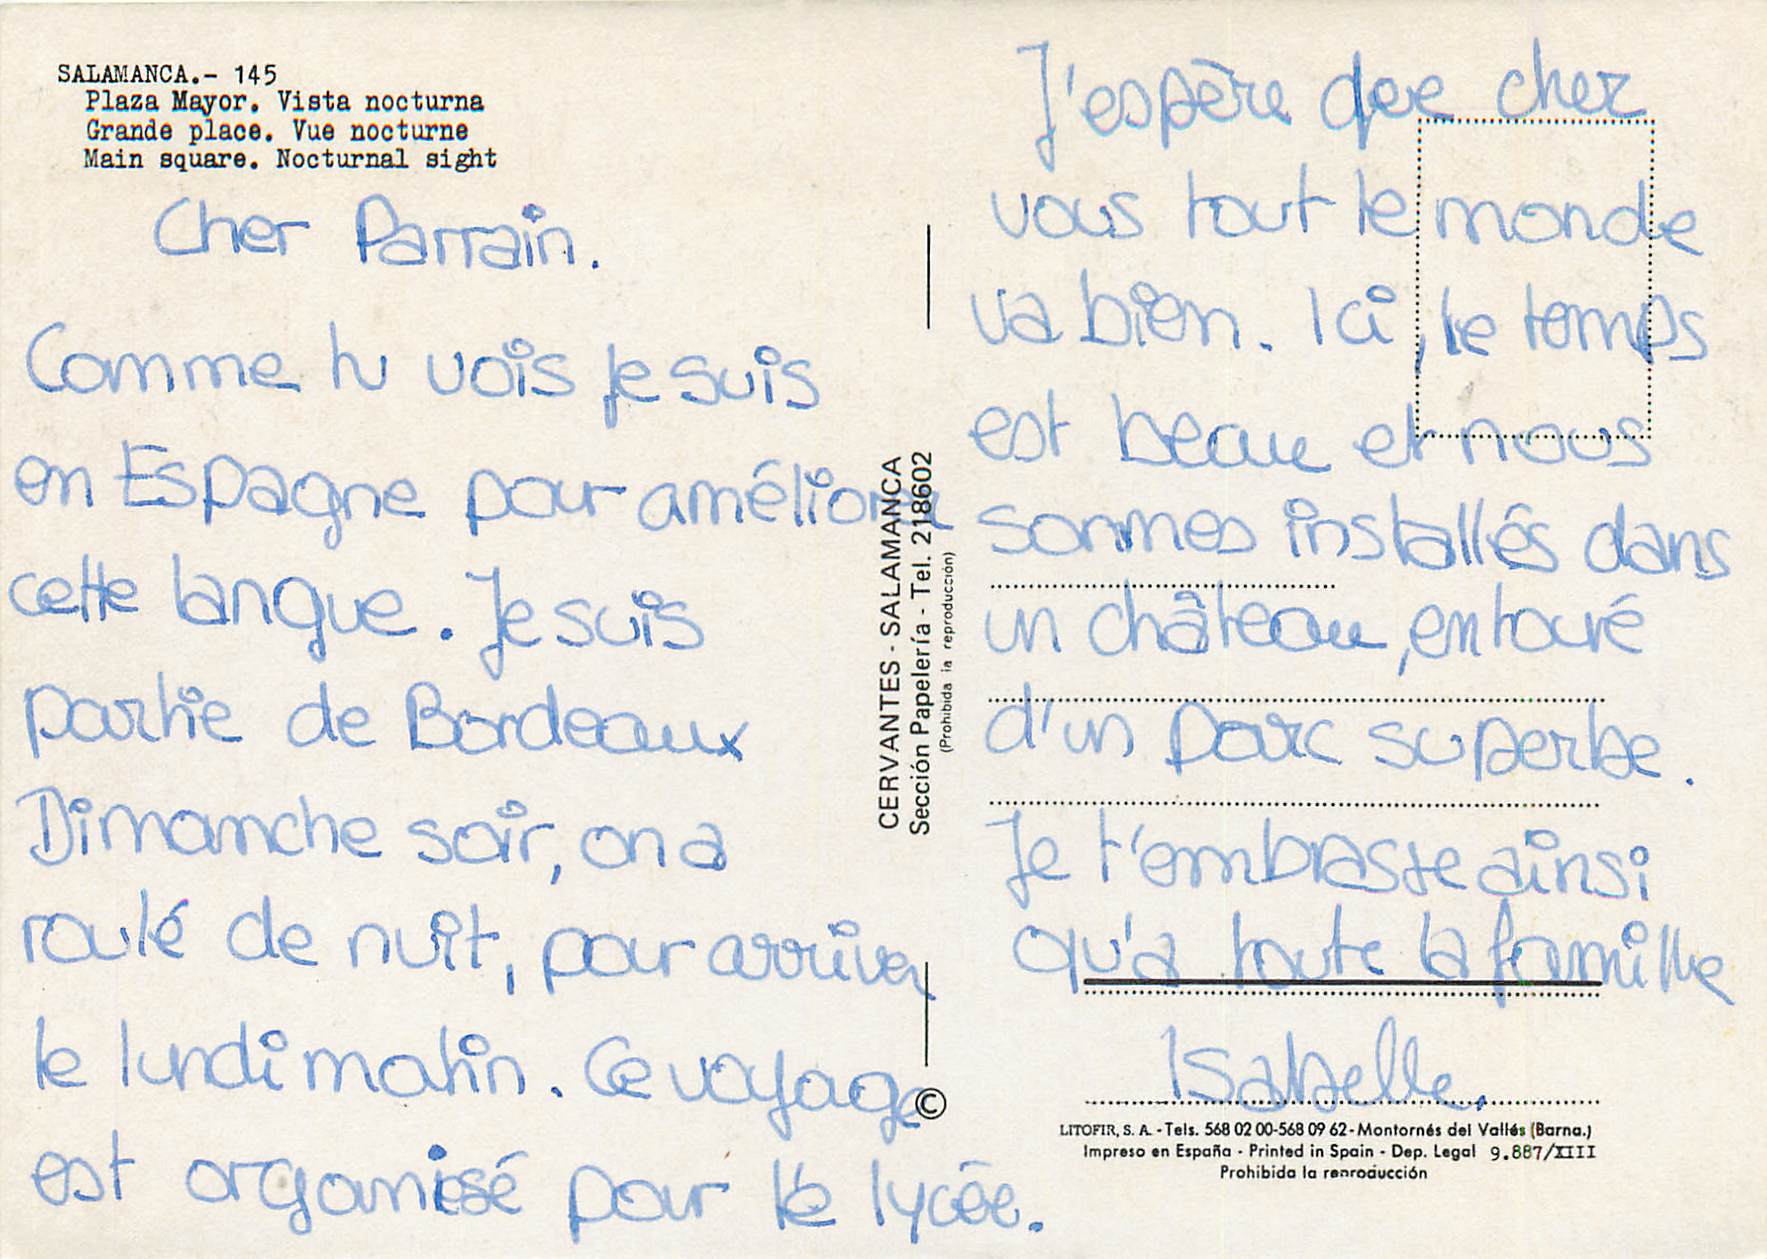 SALAMANCA.- 145
Plaza Mayor. Vista nocturna
Grande place. Vue nocturne
Main square. Nocturnal sight
Cher Parrain.
Comme tu vois je suis
en Espagne pour améliorer
cette langue. Je suis
partie de Bordeaux
Dimanche soir, on a
roulé de nuit, pour arriver
le lundi matin. Ce voyage
est organisé pour le lycée.
CERVANTES - SALAMANCA
Sección Papelería - Tel. 218602
(Prohibida la reproducción)
©
J'espère que chez
vous tout le monde
va bien. Ici, le temps
est beau et nous
sommes installés dans
un château, entouré
d'un parc superbe.
Je t'embrasse ainsi
qu'à toute la famille
Isabelle.
LITOFIR, S. A. - Tels. 568 02 00-568 09 62 - Montornés del Vallés (Barna.)
Impreso en España - Printed in Spain - Dep. Legal 9.887/XIII
Prohibida la reproducción